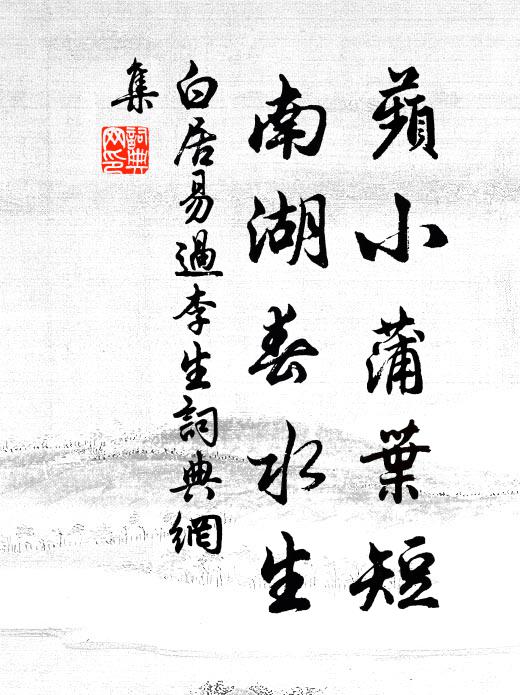 蘋小蒲葉短
南湖春水生
白居易過李生詞典網
集
詞典
网印